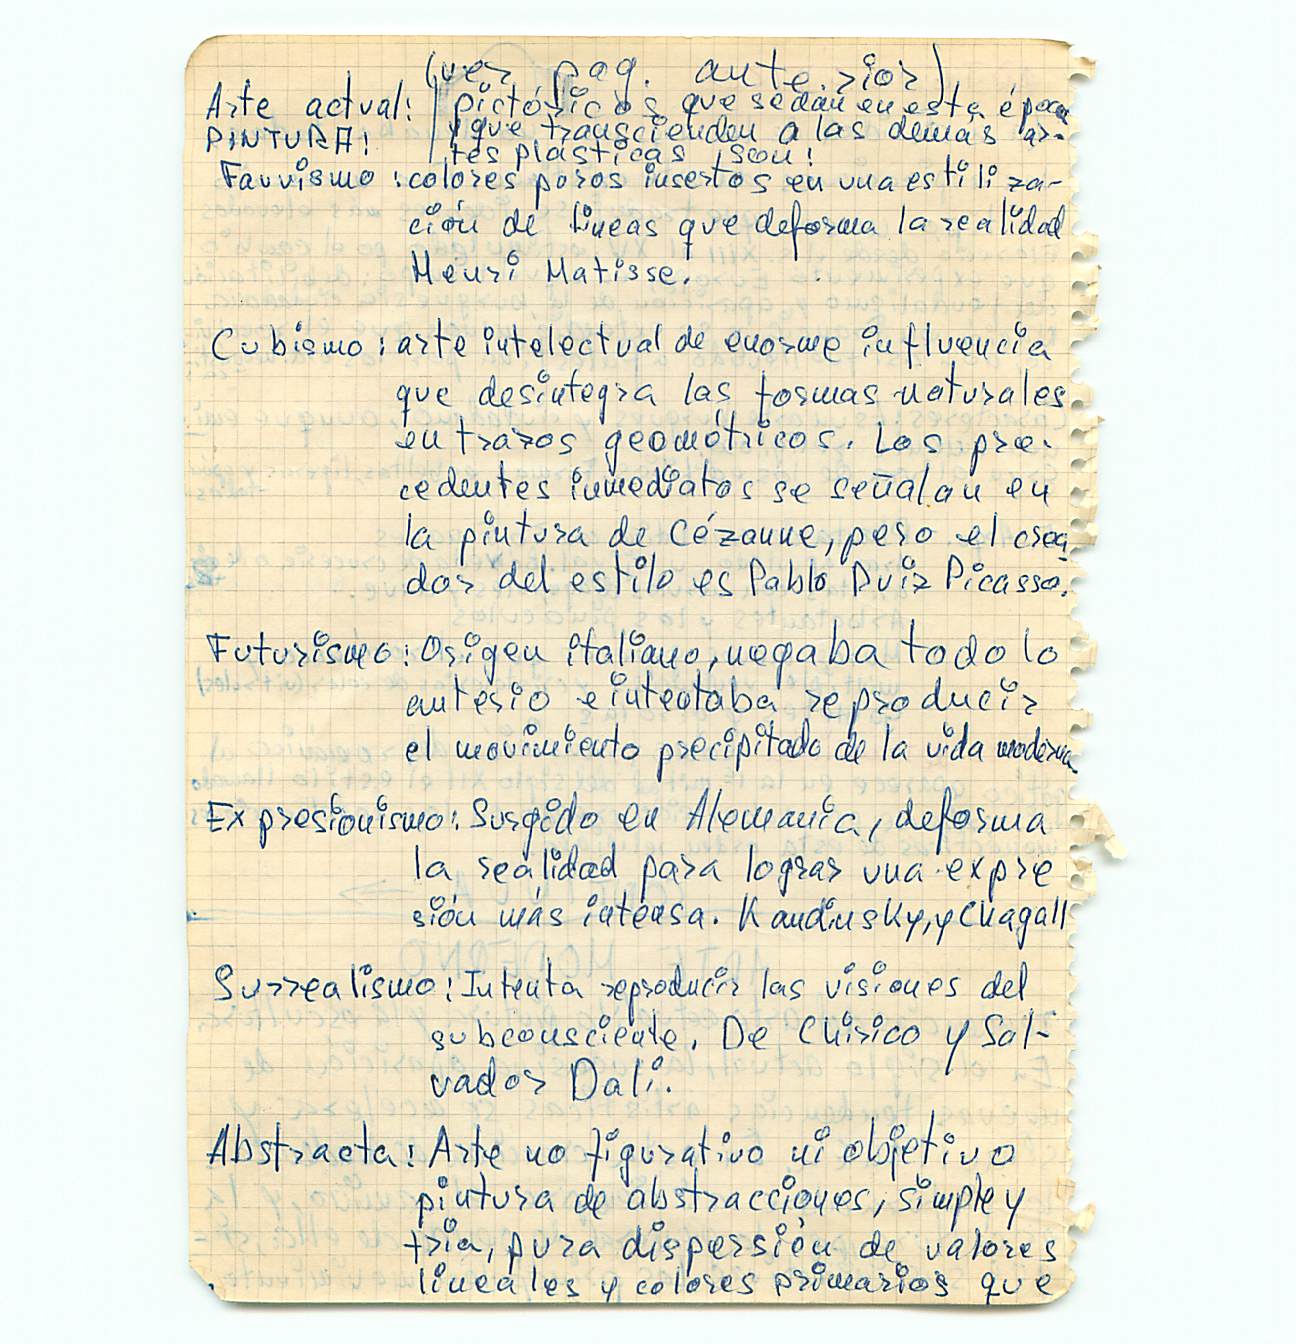 (ver pag. anterior)
Arte actual: pictóricos que se dan en esta época
PINTURA: y que transcienden a las demas ar-
tes plásticas, son:
Fauvismo: colores poros insertos en una estiliza-
ción de lineas que deforma la realidad
Henri Matisse.
Cubismo: arte intelectual de enorme influencia
que desintegra las formas naturales
en trazos geométricos. Los pre-
cedentes inmediatos se señalan en
la pintura de Cézanne, pero el crea
dor del estilo es Pablo Ruiz Picasso.
Futurismo: Origen italiano, negaba todo lo
anterio e intentaba reproducir
el movimiento precipitado de la vida moderna
Expresionismo: Surgido en Alemania, deforma
la realidad para lograr una expre
sión más intensa. Kandinsky, y Chagall
Surrealismo: Intenta reproducir las visiones del
subconsciente. De Chirico y Sal-
vador Dalí.
Abstracta: Arte no figurativo ni objetivo
pintura de abstracciones, simple y
fria, pura dispersión de valores
lineales y colores primarios que